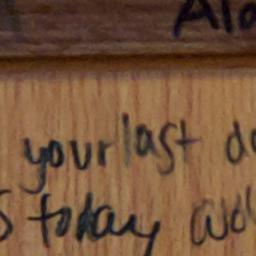 Ala
your last d
s today